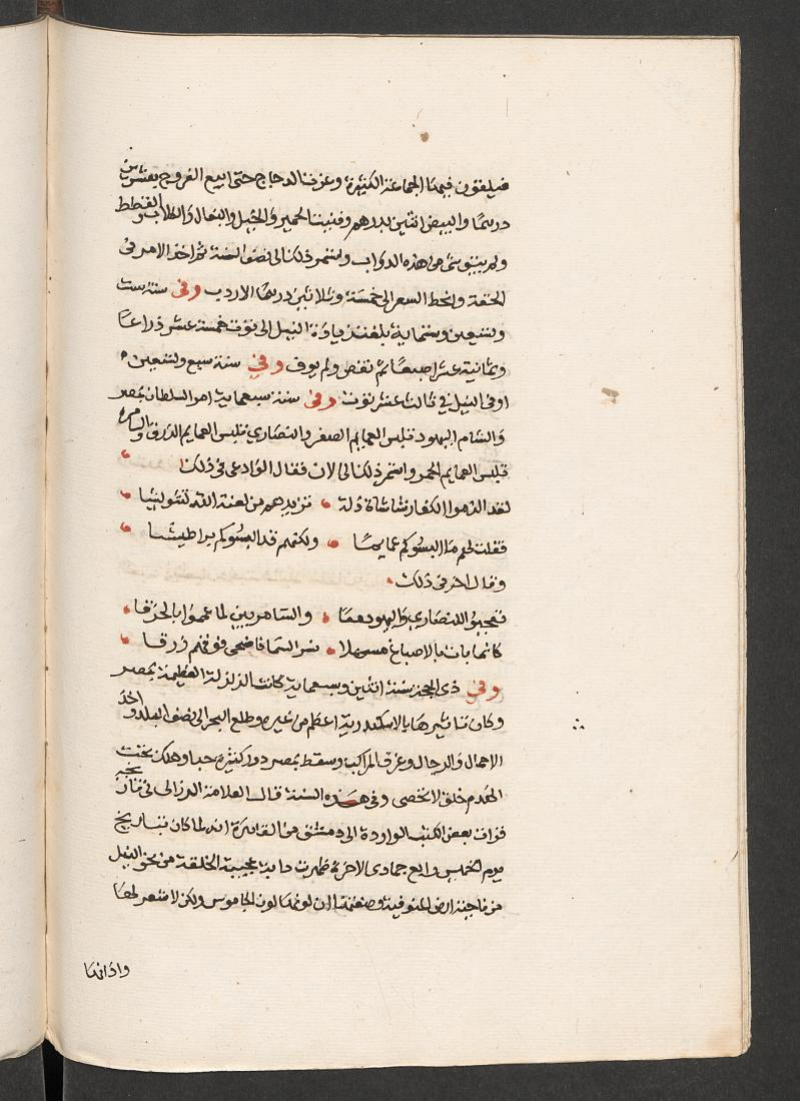 فيلقون فيها الجماعة الكثيرة وعزت الدجاج حتى ابيع الفروج بعشرين
درهما والبيض اثنين بدرهم وفنيت الحمير والخيل والبغال والكلاب والقطط
ولم يبق شى من هذه الدواب واستمر ذلك الى نصف السنة ثم اخذ الامر فى
الخفة وانحط السعر الى خمسة وثلاثين درهما الاردب وفى سنة ست
وتسعين وستماية بلغت زيادة النيل الى توت خمسة عشر ذراعا
وثمانية عشر اصبعا ثم نقص ولم يوف وفي سنة سبع وتسعين
اوفى النيل في ثالث عشر توت وفى سنة سبعماية امر السلطان بمصر
والشام اليهود تلبس العمايم الصفر والنصارى تلبس العمايم الزرق والسامره
تلبس العمايم الحمر واستمر ذلك الى الان فقال الوادعى فى ذلك
لقد الزموا الكفار شاشات ذلة تزيدهم من لعنة الله تشويشا
فقلت لهم ما البسوكم عمايما ولكنهم قد البسوكم براطيشا
وقال اخر فى ذلك
تعجبوا للنصارى واليهود معا والسامريين لما عمموا الخرقا
كانما بات بالاصباغ مسهلا نسر السما فاضحى فوقهم ذرقا
وفي ذى الحجة سنة اثنين وسبعماية كانت الزلزلة العظيمة بمصر
وكان تاثيرها بالاسكندرية اعظم من غيره وطلع البحر الى نصف البلد واخذ
الاحمال والرجال وغرقت المراكب وسقط بمصر دور كثيره جدا وهلك تحت
الهدم خلق لا تحصى وفى هذه السنة قال العلامة البرزالى فى تاريخه
قرات بعض الكتب الواردة الى دمشق من القاهرة انه لما كان بتاريخ
يوم الخميس رابع جمادى الاخرة ظهرت دابة عجيبة الخلقة من بحر النيل
من ناحية ارض المنوفية وصفتها ان لونها لون الجاموس ولكن لا شعر لها
واذانها